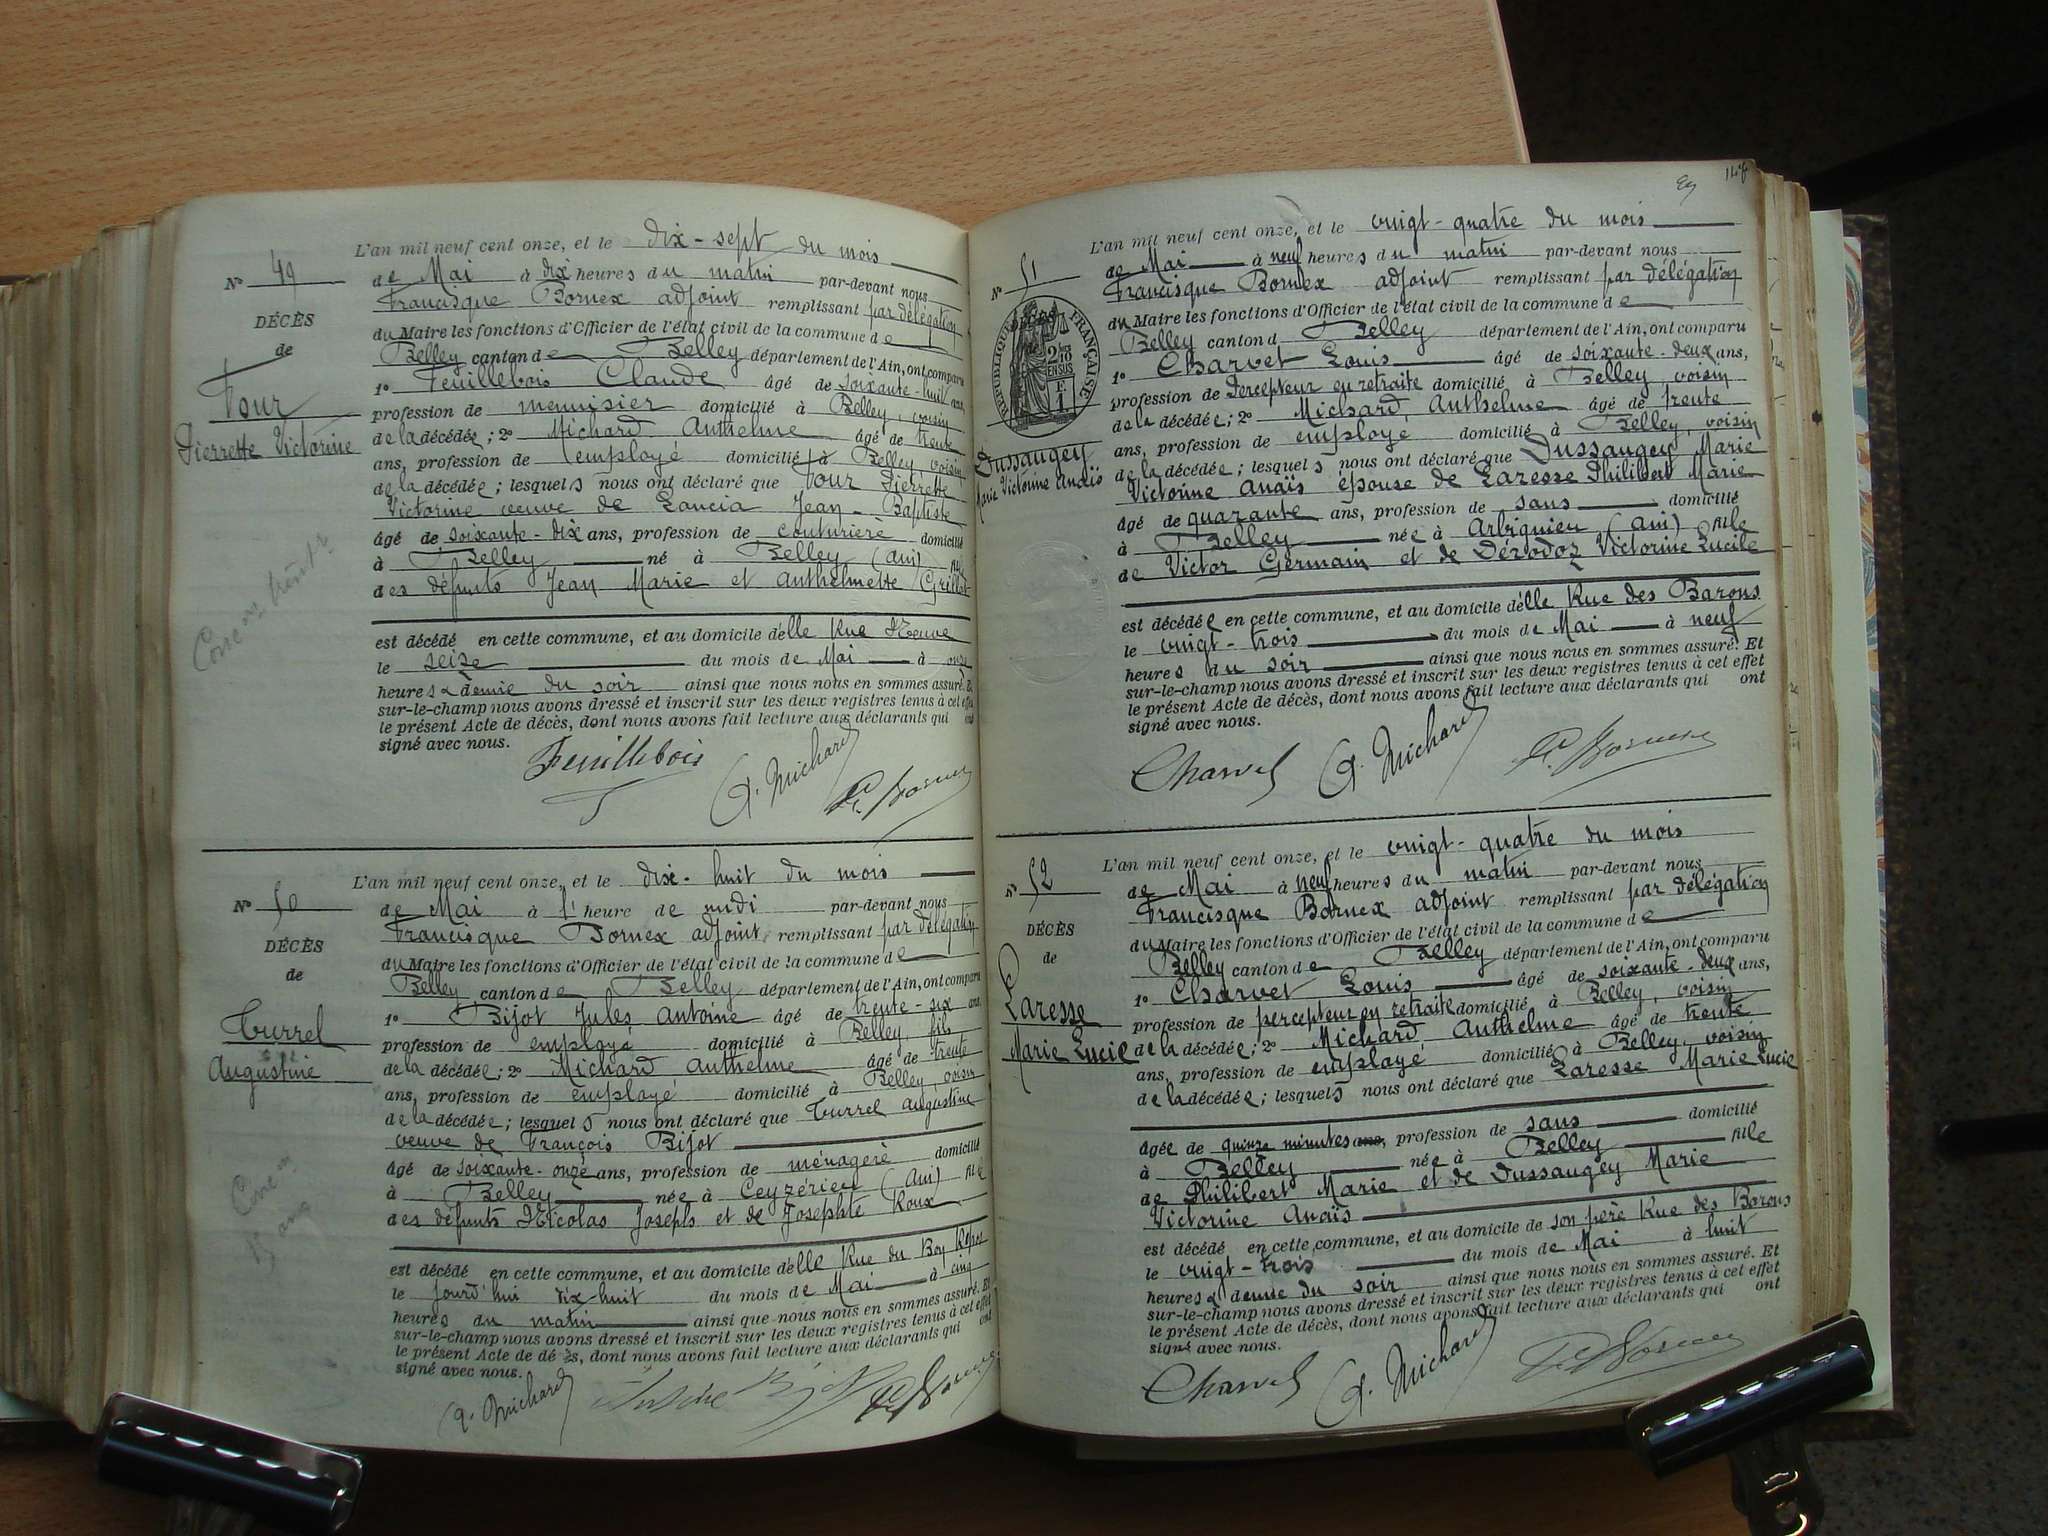 L'an mil neuf cent onze, et le dix-sept du mois
No 49
de Mai à dix heures du matin par-devant nous
Francisque Bornex adjoint remplissant par délégation
DÉCÈS
du Maire les fonctions d'Officier de l'état civil de la commune de
de
Belley canton de Belley département de l'Ain, ont comparu
1o Feuillebois Claude âgé de soixante-huit ans,
Four
profession de menuisier domicilié à Belley, voisin
Pierrette Victorine
de la décédée; 2o Michard Anthelme âgé de trente
ans, profession de employé domicilié à Belley, voisin
de la décédée; lesquels nous ont déclaré que Four Pierrette
Victorine veuve de Lancia Jean-Baptiste
âgé de soixante-dix ans, profession de couturière domicilié
à Belley né à Belley (Ain) fille
des défunts Jean Marie et Anthelmette Grillet
est décédé en cette commune, et au domicile d'elle Rue Neuve
le seize du mois de Mai à onze
heures & demie du soir ainsi que nous nous en sommes assuré. Et
sur-le-champ nous avons dressé et inscrit sur les deux registres tenus à cet effet
le présent Acte de décès, dont nous avons fait lecture aux déclarants qui ont
signé avec nous.
Feuillebois A. Michard F. Bornex
L'an mil neuf cent onze, et le dix-huit du mois
No 50
de Mai à l'heure de midi par-devant nous
Francisque Bornex adjoint remplissant par délégation
DÉCÈS
du Maire les fonctions d'Officier de l'état civil de la commune de
de
Belley canton de Belley département de l'Ain, ont comparu
1o Bijot Jules Antoine âgé de trente-six ans
Turrel
profession de employé domicilié à Belley, fils
Augustine
de la décédée; 2o Michard Anthelme âgé de trente
ans, profession de employé domicilié à Belley, voisin
de la décédée; lesquels nous ont déclaré que Turrel Augustine
veuve de François Bijot
âgé de soixante-onze ans, profession de ménagère domicilié
à Belley née à Ceyzérieu (Ain) fille
des défunts Nicolas Joseph et de Josephte Roux
est décédé en cette commune, et au domicile d'elle Rue du Bon Repos
le jourd'hui dix-huit du mois de Mai à cinq
heures du matin ainsi que nous nous en sommes assuré. Et
sur-le-champ nous avons dressé et inscrit sur les deux registres tenus à cet effet
le présent Acte de décès, dont nous avons fait lecture aux déclarants qui ont
signé avec nous.
A. Michard F. Bornex
L'an mil neuf cent onze, et le vingt-quatre du mois
No 51
de Mai à neuf heures du matin par-devant nous
Francisque Bornex adjoint remplissant par délégation
RÉPUBLIQUE FRANÇAISE
2/10 EN SUS
du Maire les fonctions d'Officier de l'état civil de la commune de
Belley canton d Belley département de l'Ain, ont comparu
1o Charvet Louis âgé de soixante-deux ans,
profession de Percepteur en retraite domicilié à Belley, voisin
de la décédée; 2o Michard Anthelme âgé de trente
Dussaugey
Marie Victorine Anaïs
ans, profession de employé domicilié à Belley, voisin
de la décédée; lesquels nous ont déclaré que Dussaugey Marie
Victorine Anaïs épouse de Laresse Philibert Marie
âgé de quarante ans, profession de sans domicilié
à Belley née à Arbignieu (Ain) fille
de Victor Germain et de Dérodoz Victorine Lucile
est décédée en cette commune, et au domicile d'elle Rue des Barons
le vingt-trois du mois de Mai à neuf
heures du soir ainsi que nous nous en sommes assuré. Et
sur-le-champ nous avons dressé et inscrit sur les deux registres tenus à cet effet
le présent Acte de décès, dont nous avons fait lecture aux déclarants qui ont
signé avec nous.
Charvet A. Michard F. Bornex
L'an mil neuf cent onze, et le vingt-quatre du mois
No 52
de Mai à neuf heures du matin par-devant nous
Francisque Bornex adjoint remplissant par délégation
DÉCÈS
du Maire les fonctions d'Officier de l'état civil de la commune de
de
Belley canton de Belley département de l'Ain, ont comparu
1o Charvet Louis âgé de soixante-deux ans,
Laresse
profession de percepteur en retraite domicilié à Belley, voisin
Marie Lucie
de la décédée; 2o Michard Anthelme âgé de trente
ans, profession de employé domicilié à Belley, voisin
de la décédée; lesquels nous ont déclaré que Laresse Marie Lucie
âgée de quinze minutes ans, profession de sans domicilié
à Belley née à Belley fille
de Philibert Marie et de Dussaugey Marie
Victorine Anaïs
est décédé en cette commune, et au domicile de son père Rue des Barons
le vingt-trois du mois de Mai à huit
heures & demie du soir ainsi que nous nous en sommes assuré. Et
sur-le-champ nous avons dressé et inscrit sur les deux registres tenus à cet effet
le présent Acte de décès, dont nous avons fait lecture aux déclarants qui ont
signé avec nous.
Charvet A. Michard F. Bornex